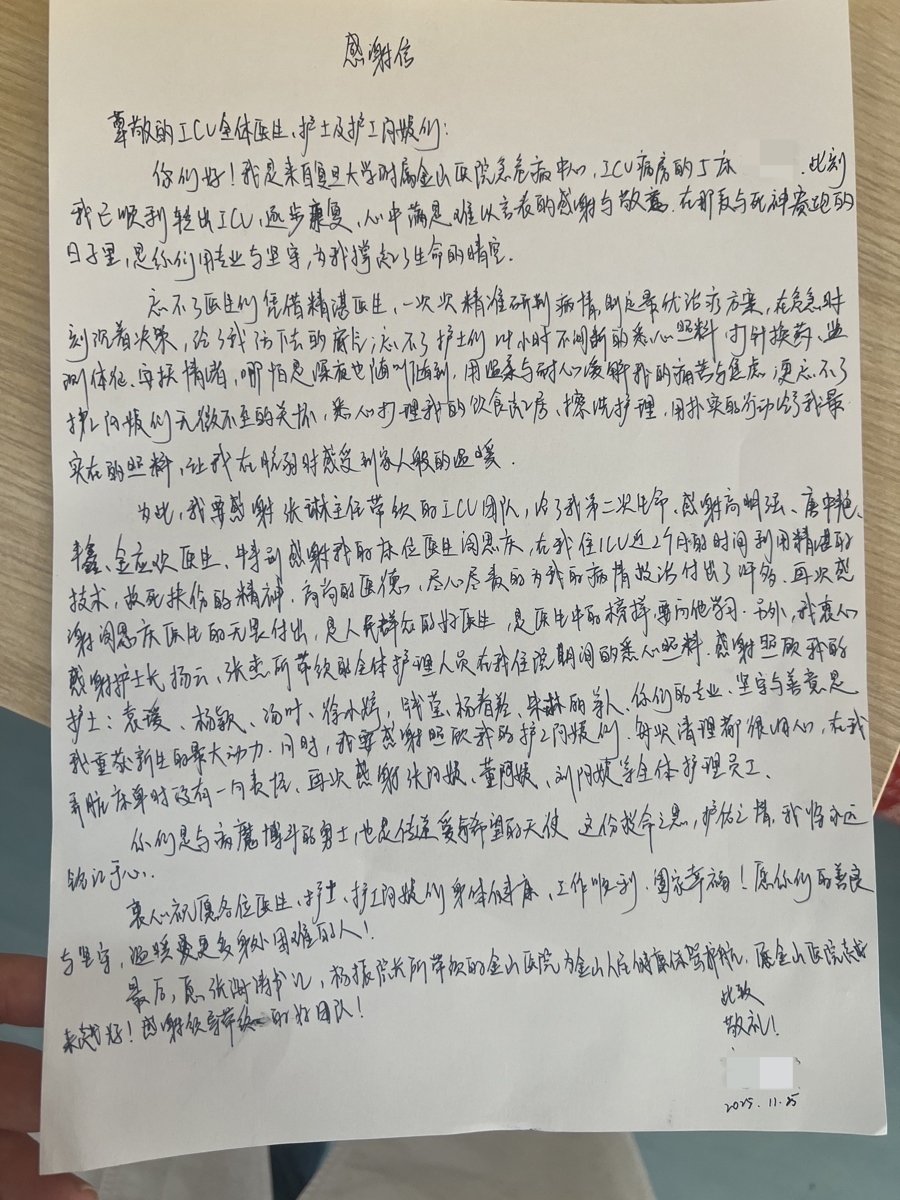 感谢信
尊敬的ICU全体医生、护士及护工阿姨们:
你们好!我是来自复旦大学附属金山医院急危病中心,ICU病房的5床 .此刻
我已顺利转出ICU,逐步康复,心中满是难以言表的感谢与敬意.在那段与死神赛跑的
日子里,是你们用专业与坚守,为我撑起了生命的晴空.
忘不了医生们凭借精湛医生,一次次精准研判病情,制定最优治疗方案,在危急时
刻沉着决策,给了我活下去的底气;忘不了护士们24小时不间断的悉心照料,打针换药、监
测体征、安抚情绪,哪怕是深夜也随叫随到,用温柔与耐心缓解我的痛苦与焦虑.更忘不了
护工阿姨们无微不至的关怀,悉心打理我的饮食起居、擦洗护理,用朴实的行动给了我最
实在的照料,让我在脆弱时感受到家人般的温暖.
为此,我要感谢张琳主任带领的ICU团队,给了我第二次生命.感谢高明强、唐中艳、
丰鑫、金应欢医生.特别感谢我的床位医生闵思庆,在我住ICU近2个月的时间利用精湛的
技术,救死扶伤的精神,高尚的医德,尽心尽责的为我的病情救治付出了许多.再次感
谢闵思庆医生的无畏付出,是人民群众的好医生,是医生中的榜样,要向他学习.另外,我衷心
感谢护士长杨云,张杰所带领的全体护理人员在我住院期间的悉心照料.感谢照顾我的
护士:袁媛、杨颖、汤叶、徐小婷,钱莹、杨春 的等人.你们的专业、坚守与善意是
我重获新生的最大动力.同时,我要感谢照顾我的护工阿姨们.每次清理都很细心,在我
弄脏床单时没有一句责怪.再次感谢张阿姨、董阿姨、刘阿姨等全体护理员工.
你们是与病魔博斗的勇士,也是传递爱与希望的天使.这份救命之恩,护佑之情,我将永远
铭记于心.
衷心祝愿各位医生、护士、护工阿姨们身体健康、工作顺利、阖家幸福!愿你们的善良
与坚守,温暖更多身处困难的人!
最后,愿张 涛书记,杨振院长所带领的金山医院为金山人民健康保驾护航,愿金山医院越
来越好!感谢领导带领的好团队!
此致
敬礼!
2025.11.25